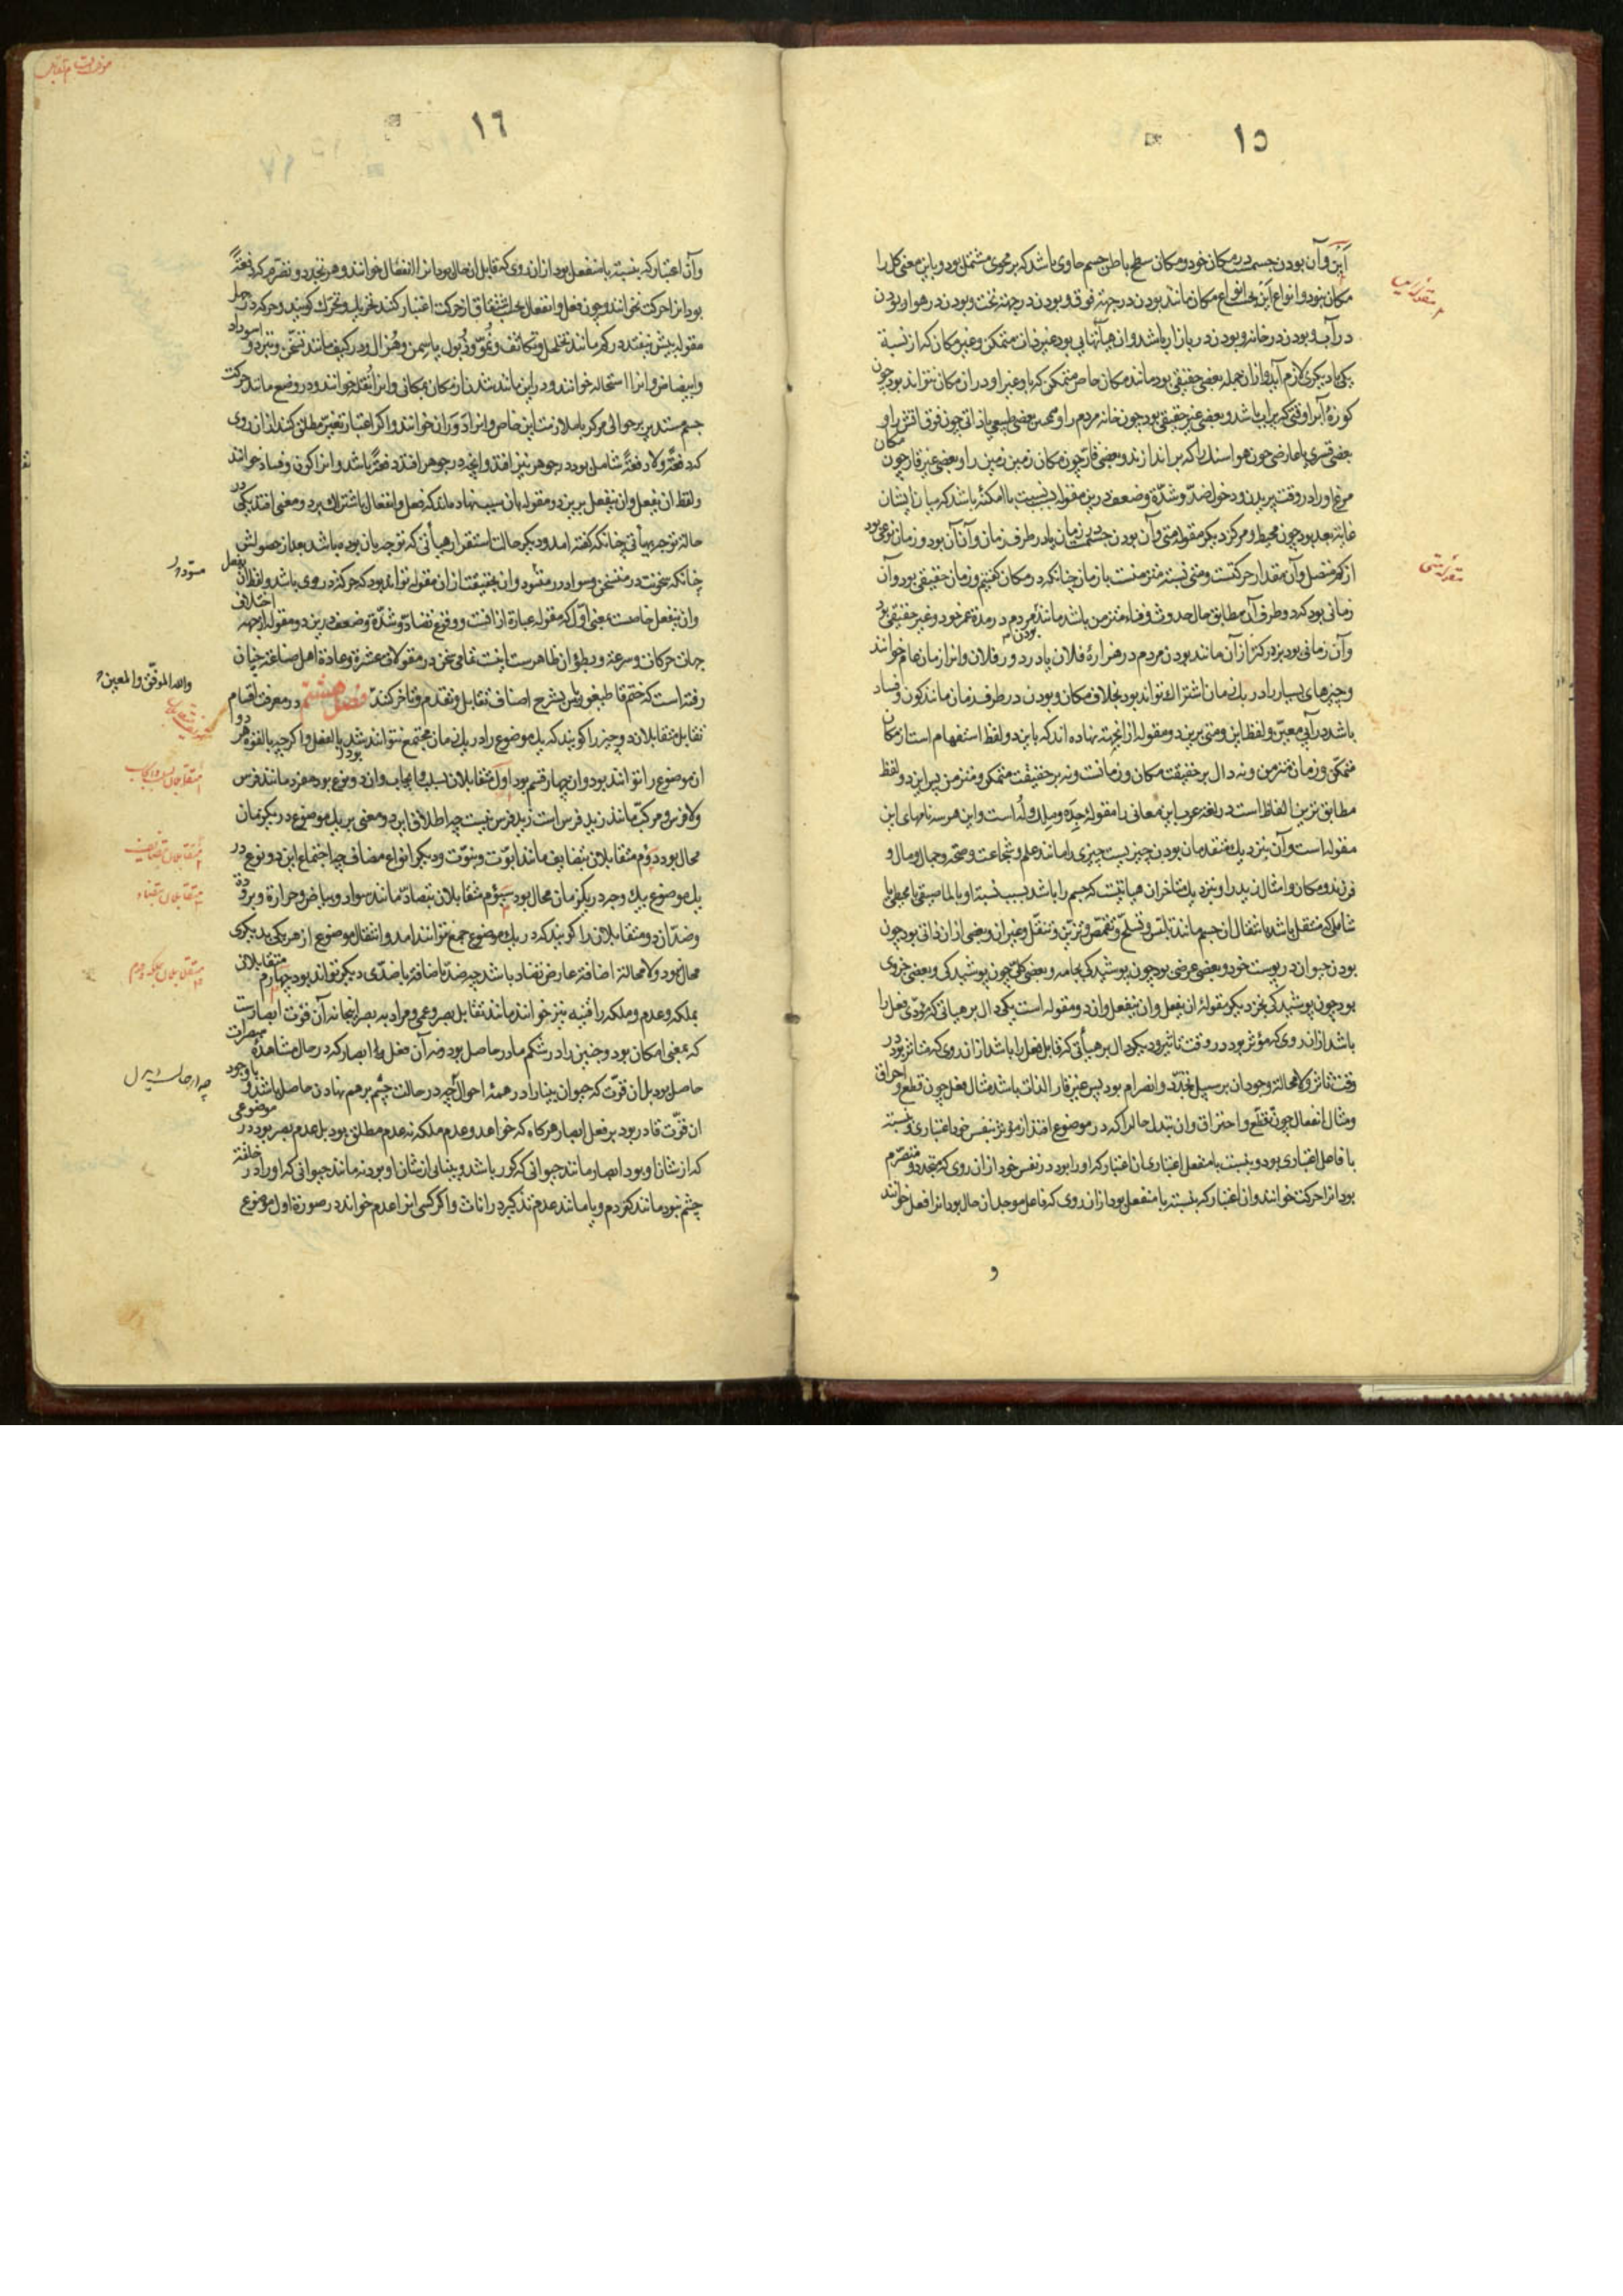 ١٥
أین و آن بودن جسمست در مکان خود و مکان سطح باطن جسم حاوی باشد که بر محوی مشتمل بود و باین معنی کل را
مکان نبود و انواع این بحسب انواع مکان مانند بودن در جهة فوق و بودن در جهة تحت و بودن در هوا و بودن
در آب و بودن در خانه و بودن در بازار باشد و ان هیأتهایی بود غیر ذات متمکن و غیر مکان که از نسبة
یکی با دیکری لازم آید و از ان جمله بعضی حقیقی بود مانند مکان خاص متمکن که با او غیر او در ان مکان نتواند بود چون
کوزهٔ آب را وقتی که پر اب باشد و بعضی غیر حقیقی بود چون خانه مردم را و همچنین بعضی طبیعی یا ذاتی چون فوق اتش را و
بعضی قسری یا عارضی چون هوا سنک را که بر اندازند و بعضی قار چون مکان زمین زمین را و بعضی غیر قار چون مکان
مرغ او را در وقت پریدن و دخول ضد و شدّة و ضعف درین مقوله بنسبت با امکنهٔ باشد که میان ایشان
غایة بعد بود چون محیط و مرکز دیکر مقوله متی و آن بودن جسمست در زمان یا در طرف زمان و آن آن بود و زمان نوعی بود
از کم متصل و آن مقدار حرکتست و متی نسبة متزمنست با زمان چنانکه در مکان کفتیم و زمان حقیقی بود و آن
زمانی بود که دو طرف آن مطابق حال حدوث و فناء متزمن باشد مانند بودن مردم در مدة عمر خود و غیر حقیقی بود
و آن زمانی بود بزرکتر از آن مانند بودن مردم در هزارهٔ فلان یا در دور فلان و انرا زمان عام خوانند
و چیزهای بسیار را در یک زمان اشتراک تواند بود بخلاف مکان و بودن در طرف زمان مانند کون و فساد
باشد در آنی معین و لفظ این و متی برین دو مقوله از انجهة نهاده اند که باین دو لفظ استفهام است از مکان
متمکن و زمان متزمن و نه دال بر حقیقت مکان و زمانست و نه بر حقیقت متمکن و متزمن پس این دو لفظ
مطابق ترین الفاظ است در لغة عرب این معانی را مقولهٔ جده و ملک و له است و این هر سه نامهای این
مقوله است و آن بنزدیک متقدمان بودن چیزیست چیزی را مانند علم و شجاعت و صحة و جمال و مال و
فرزند و مکان و امثال ان زید را و بنزدیک متاخران هیأتیست که جسم را باشد بسبب نسبة او با ملاصقی یا محیطی یا
شاملی که منتقل باشد بانتقال ان جسم مانند تلبس و تسلح و تقمص و تزین و تنقل و غیر ان و بعضی از ان ذاتی بود چون
بودن حیوان در پوست خود و بعضی عرضی بود چون پوشیدکی بجامه و بعضی کلی چون پوشیدکی و بعضی جزوی
بود چون پوشیدکی بجزو دیکر مقولهٔ ان یفعل و ان ینفعل و ان دو مقوله است یکی دال بر هیأتی که مؤدّی فعل را
باشد از ان روی که مؤثر بود در وقت تاثیر و دیکر دال بر هیأتی که قابل فعل را باشد از ان روی که متاثر بود در
وقت تاثر و لا محاله وجود ان بر سبیل تجدّد و انصرام بود پس غیر قار الذات باشد مثال فعل چون قطع و احراق
و مثال انفعال چون تقطّع و احتراق و ان تبدل حالرا که در موضوع افتد از مؤثر بنفس خود اعتباری و نسبته
با فاعل اعتباری بود و بنسبت با منفعل اعتباری ان اعتبار که او را بود در نفس خود از ان روی که متجدد و متصرّم
بود انرا حرکت خوانند و ان اعتبار که بنسبة با منفعل بود از ان روی که فاعل موجد ان حال بود انرا فعل خوانند
و
مقوله متی
١٦
و آن اعتبار که بنسبة با منفعل بود از ان روی که قابل ان حال بود انرا انفعال خوانند و هر تجدد و تصرّم که دفعةً
بود انرا حرکت نخوانند و چون فعل و انفعال بحسب اشتقاق از حرکت اعتبار کنند تحریک و تحرّک کویند و حرکه در چهل
مقوله بیش نیفتد در کم مانند تخلخل و تکاثف و نموّ و ذبول یا سمن و هزال و در کیف مانند تسخّن و تبرد و اسوداد
و ابیضاض و انرا استحاله خوانند و در این مانند شدن از مکان بمکانی و انرا نقله خوانند و در وضع مانند حرکت
جسم مستدیر بر حوالی مرکز با ملازمت این خاص و انرا دوران خوانند و اکر اعتبار تغیر مطلق کنند از ان روی
که دفعةً و لا دفعةً شامل بود در جوهر نیز افتد و انچه در جوهر افتد دفعةً باشد و انرا کون و فساد خوانند
و لفظ ان یفعل و ان ینفعل برین دو مقوله بان سبب نهاده‌اند که فعل و انفعال باشتراک بر دو معنی افتد یکی در
حالة توجه بهیأتی چنانکه کفته امد و دیکر حالت استقرار هیأتی که توجه بان بوده باشد بعد از حصولش
چنانکه سخونت در متسخن و سواد در متسود و ان بحقیقت از ان مقوله تواند بود که حرکة در وی باشد و لفظ ان یفعل
و ان ینفعل خاصست بمعنی اوّل که مقوله عبارة از انست و وقوع تضاد و شدّة و ضعف درین دو مقوله از جهه اختلاف
جهات حرکات و سرعة و بطؤ ان ظاهرست اینست تمامی سخن در مقولات عشرة و عادة اهل صناعة چنان
رفته است که ختم قاطیغوریاس بشرح اصناف تقابل و تقدم و تاخر کنند فصل هشتم در معرفت اقسام
تقابل متقابلان دو چیز را کویند که یک موضوع را در یک زمان مجتمع نتوانند شد بالفعل و اکر چه بالقوة هر دو
ان موضوع را توانند بود و ان چهار قسم بود اوّل متقابلان بسلب و ایجاب و ان دو نوع بود مفرد مانند فرس
و لا فرس و مرکّب مانند زید فرس است زید فرس نیست چه اطلاق این دو معنی بر یک موضوع در یک زمان
محال بود دوم متقابلان بتضایف مانند ابوّت و بنوّت و دیکر انواع مضاف چه اجتماع این دو نوع در
یک موضوع بیک وجه در یک زمان محال بود سیوم متقابلان بتضاد مانند سواد و بیاض و حرارة و برودة
و ضدّان دو متقابلان را کویند که در یک موضوع جمع نتوانند امد و انتقال موضوع از هر یکی بدیکری
محال نبود و لا محالة اضافة عارض تضاد باشد چه ضدّ باضافة با ضدّی دیکر تواند بود چهارم متقابلان
بملکه و عدم و ملکه را قنیه نیز خوانند مانند تقابل بصر و عمی و مراد به بصر اینجا نه آن قوت ابصارست
که بمعنی امکان بود و جنین را در شکم مادر حاصل بود و نه آن فعل ابصار که در حال مشاهدهٔ مبصرات
حاصل بود بل ان قوّت که حیوان بینا را در همهٔ احوال اگرچه در حالت چشم برهم نهادن حاصل باشد و با وجود
ان قوّت قادر بود بر فعل ابصار هرکاه که خواهد و عدم ملکه نه عدم مطلق بود بل عدم بصر بود در موضوعی
که از شان او بود ابصار مانند حیوانی که کور باشد و بینای از شان او بود نه مانند حیوانی که او را در خلقة
چشم نبود مانند کژدم و یا مانند عدم تذکیر در اناث و اکر کسی انرا عدم خواند در صورة اول موضوع
والله الموفق والمعین
متقابلان بتضایف
متقابلان بتضاد
متقابلان بملکه و عدم